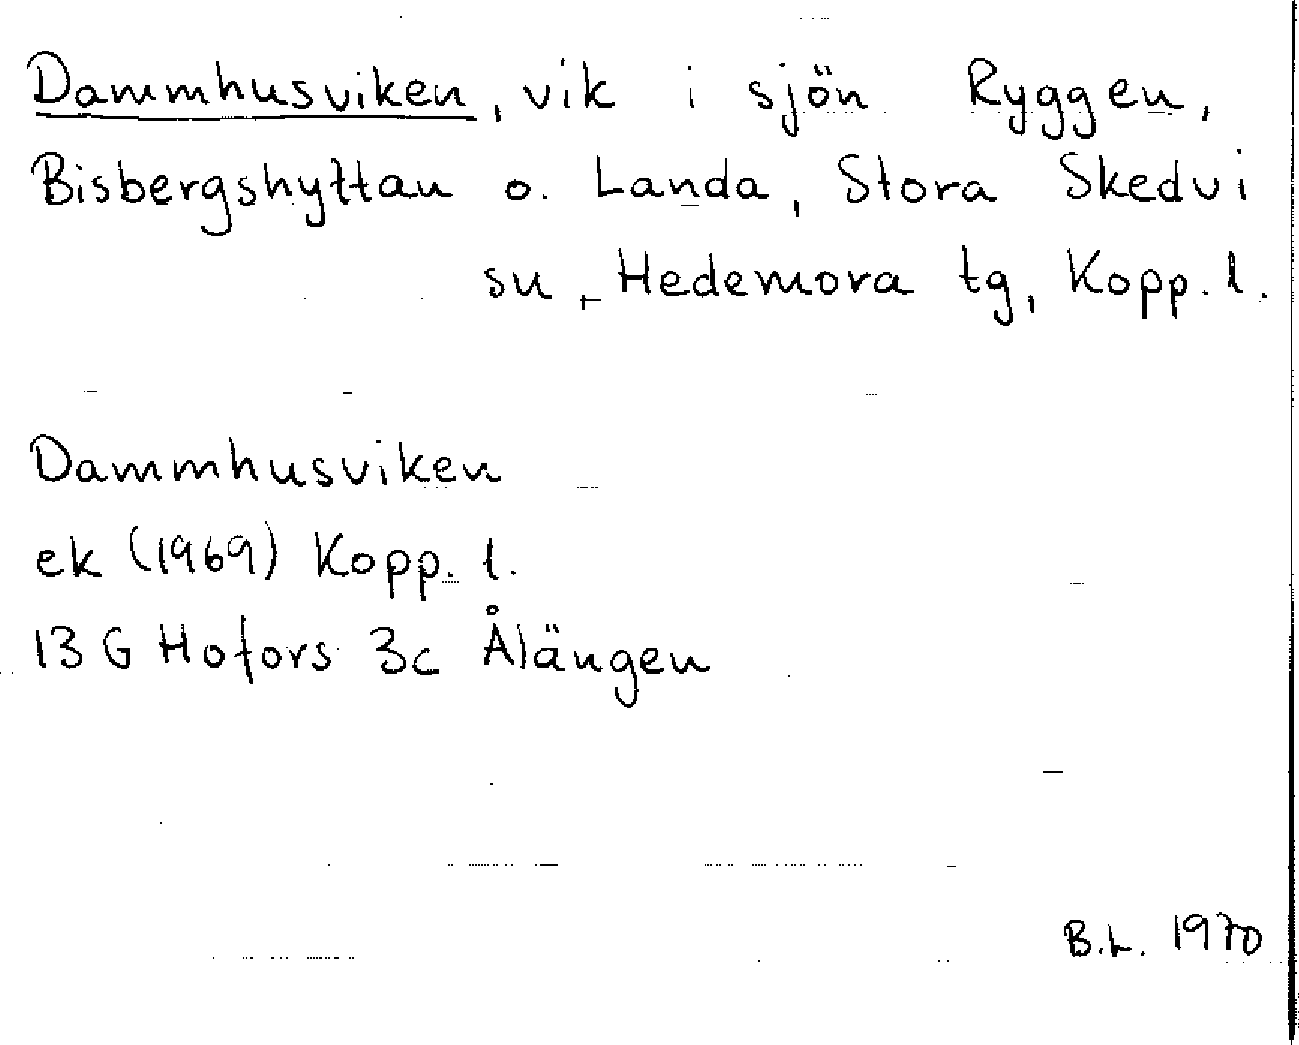 Dammhusviken, vik i sjön Ryggen,
Bisbergshyttan o. Landa, Stora Skedvi
sn, Hedemora tg, Kopp. l.
Dammhusviken
ek (1969) Kopp. l.
13 G Hofors 3c Ålängen
B.L. 1970